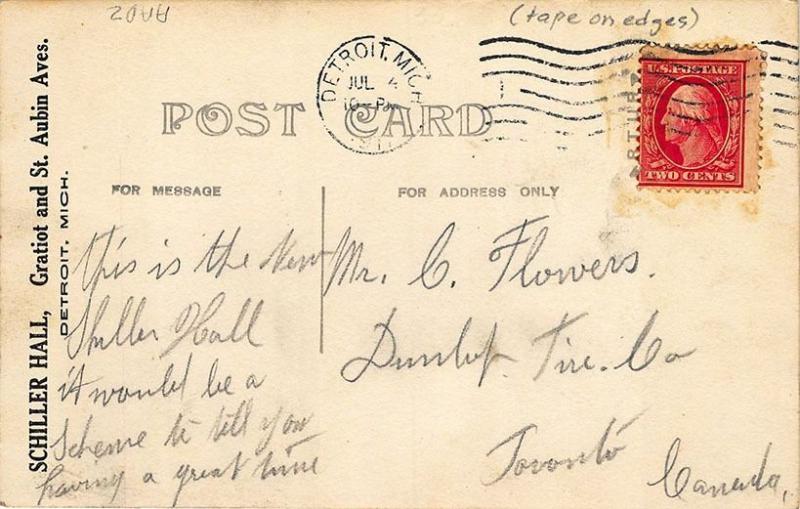 AAD2
(tape on edges)
DETROIT, MICH
JUL
10-PM
U.S. POSTAGE
TWO CENTS
POST CARD
SCHILLER HALL, Gratiot and St. Aubin Aves.
DETROIT, MICH.
FOR MESSAGE
FOR ADDRESS ONLY
this is the New
Shiller Hall
it would be a
scheme to tell you
having a great time
Mr. C. Flowers.
Dunlop. Tire. Co
Toronto
Canada,